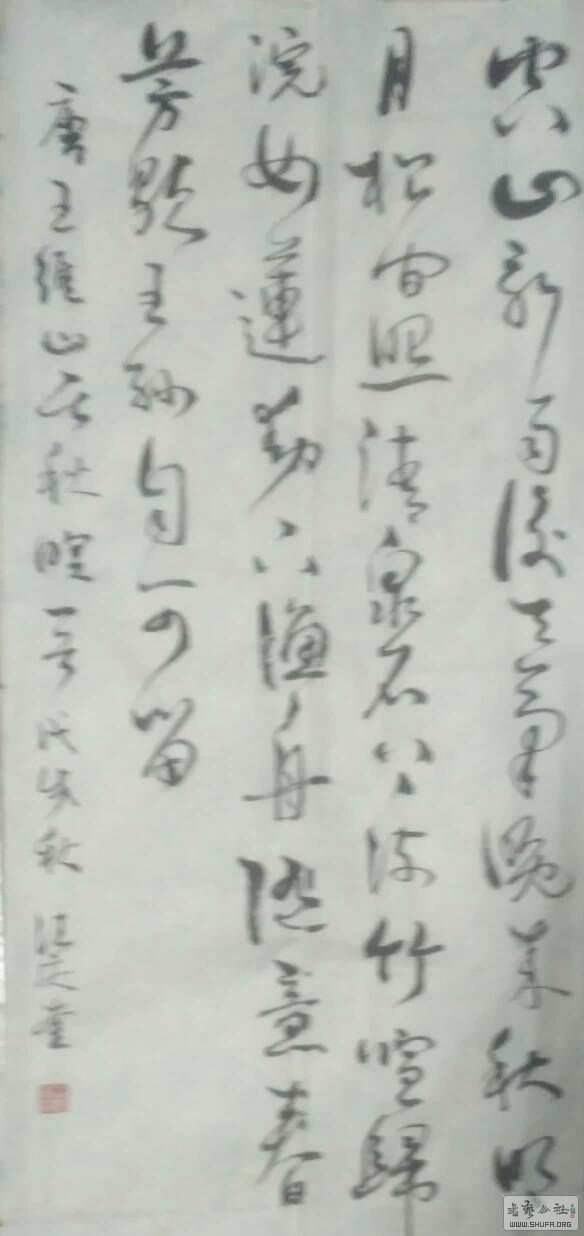 空山新雨後天氣晚来秋明
月松间照清泉石上流竹喧歸
浣女蓮動下漁舟随意春
芳歇王孫自可留
唐王維山居秋暝一首戊戌秋
書藝公社
WWW.SHUFA.ORG